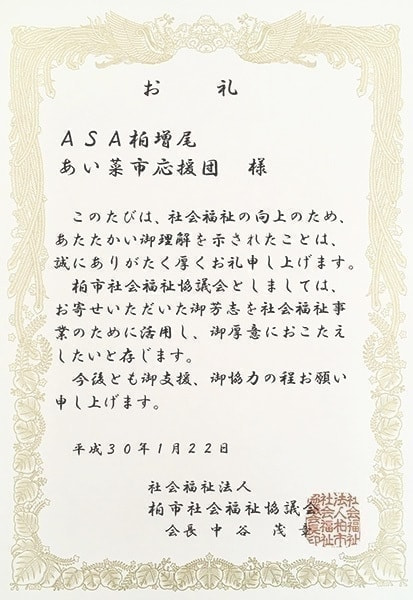 お 礼
ASA柏増尾
あい菜市応援団 様
このたびは、社会福祉の向上のため、
あたたかい御理解を示されたことは、
誠にありがたく厚くお礼申し上げます。
柏市社会福祉協議会としましては、
お寄せいただいた御芳志を社会福祉事
業のために活用し、御厚意におこたえ
したいと存じます。
今後とも御支援、御協力の程お願い
申し上げます。
平成30年1月22日
社会福祉法人
柏市社会福祉協議会
会長 中谷 茂章